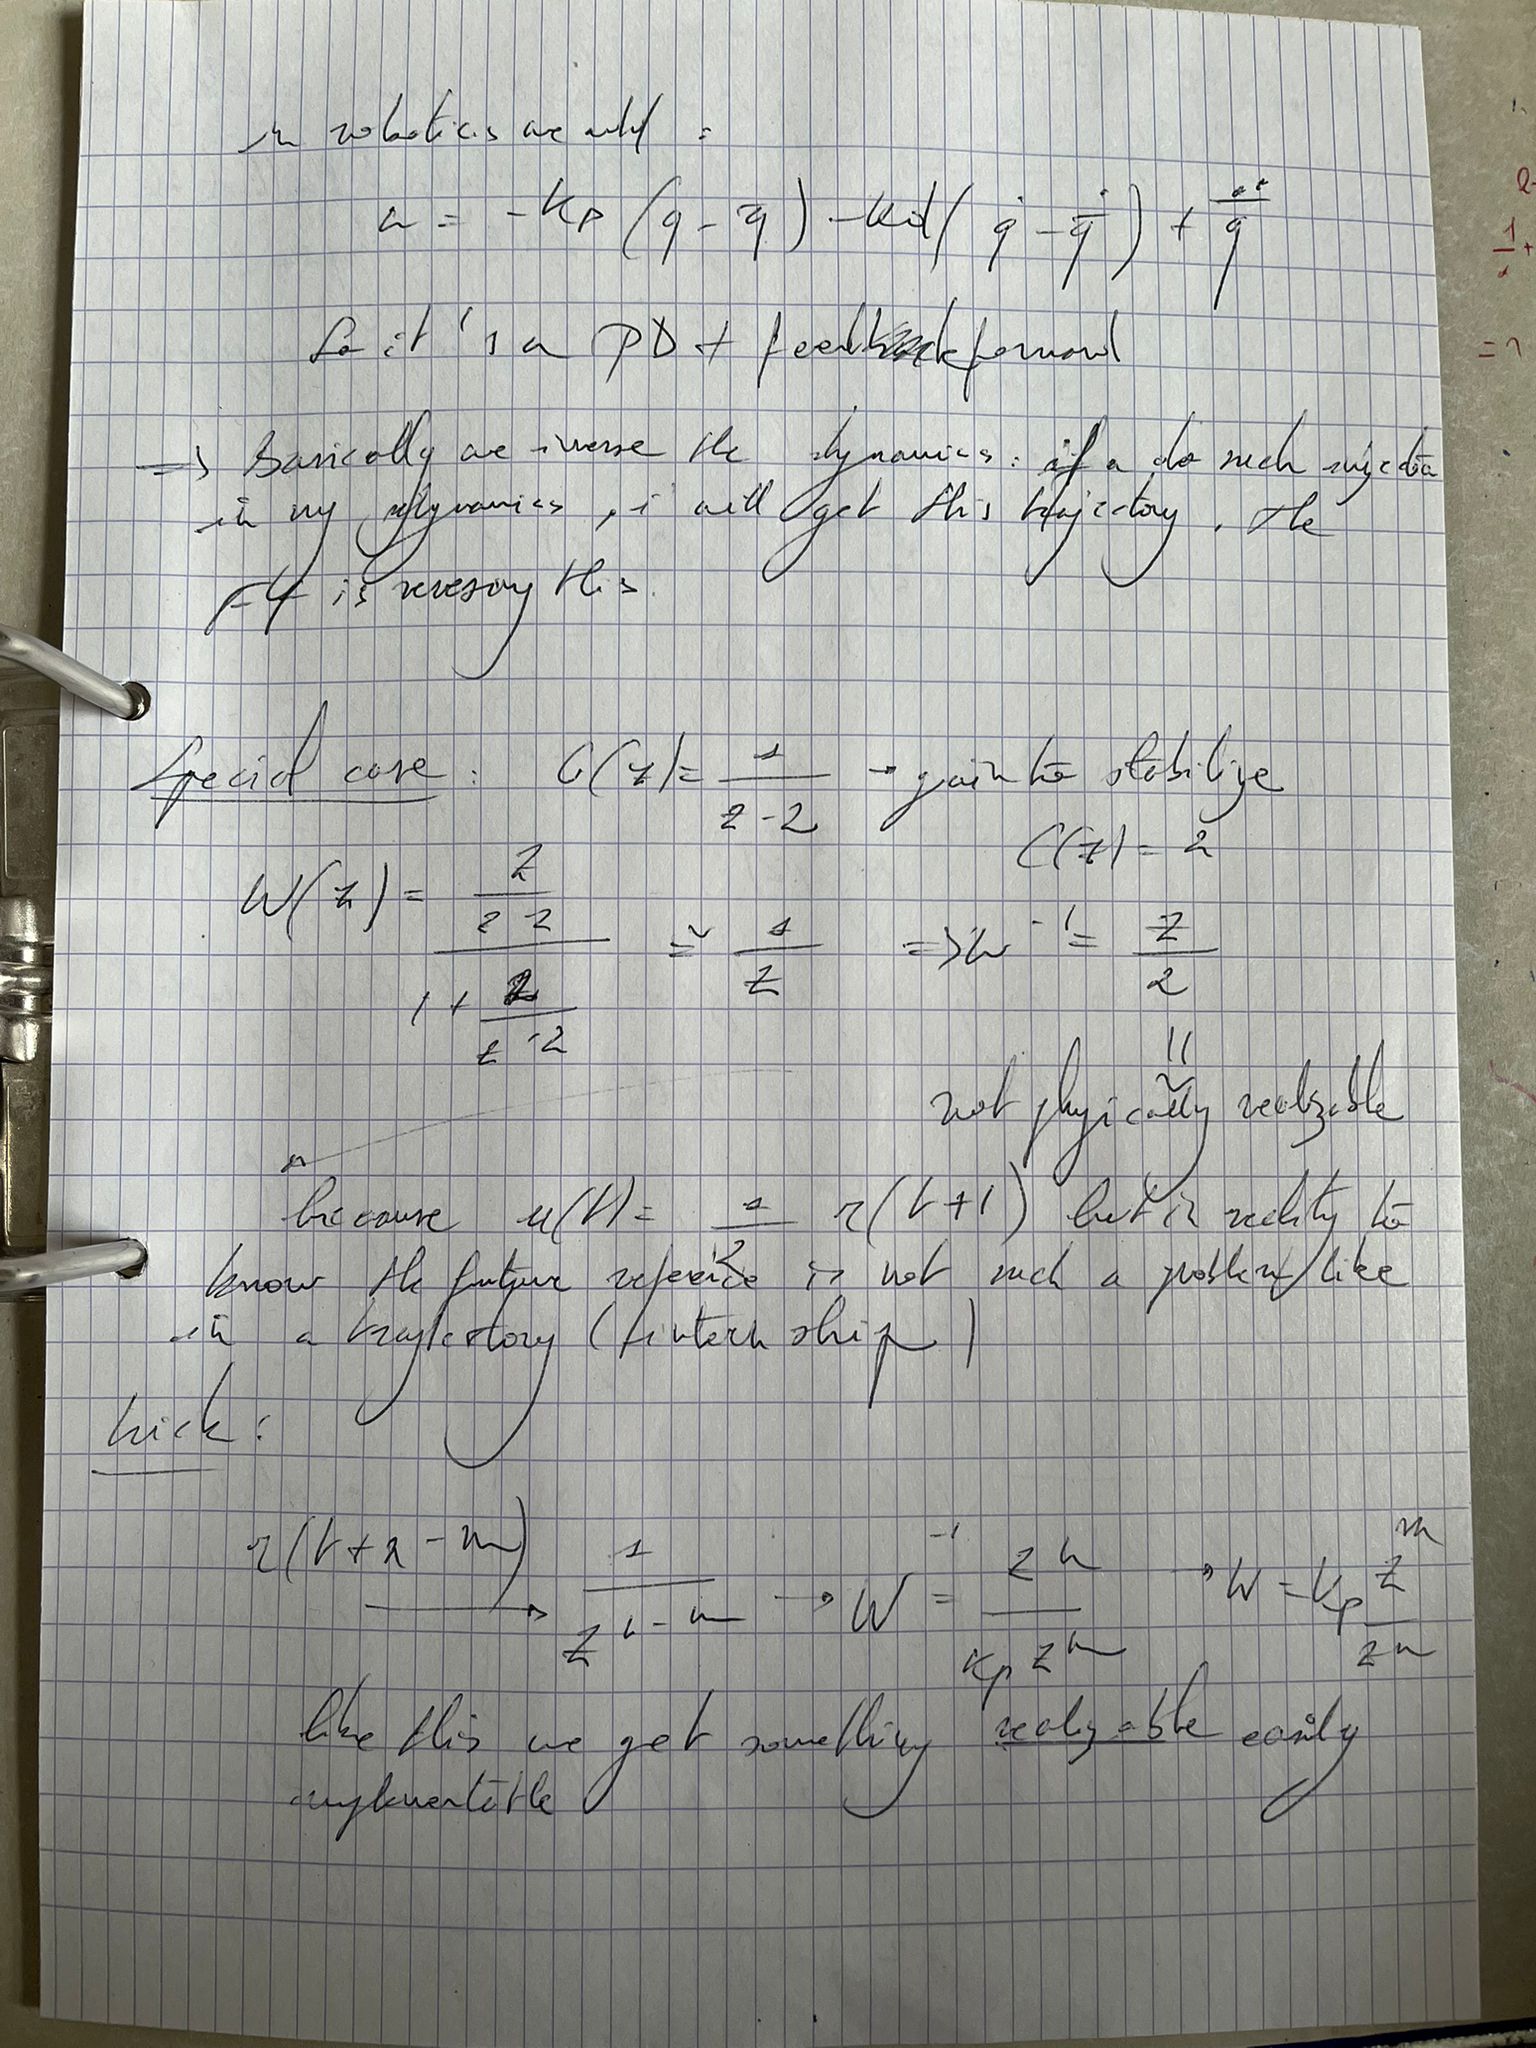 in robotics we
u = -Kp (q - q̄) - Kd ( q̇ - q̄̇ ) + q̄̈
So it's a PD + feed forward
=> Basically we inverse the dynamics : if a do such
in my dynamics , i will get this trajectory . the
is this
Special case : G(z) = 1/(z-2) → gain to stabilize
C(z) = 2
W(z) = (2/(z-2))/(1 + 2/(z-2)) = 2/z => W^-1 = z/2
not physically realizable
because u(t) = 1/2 r(t+1) but in reality to
know the future reference is not such a problem like
in a trajectory ( internship )
trick :
r(t+n-m) → 1/z^(n-m) → W^-1 = z^n/(Kp z^m) → W = Kp z^m/z^n
like this we get something realizable easily
implementable
1
2-
1/. +
= 1